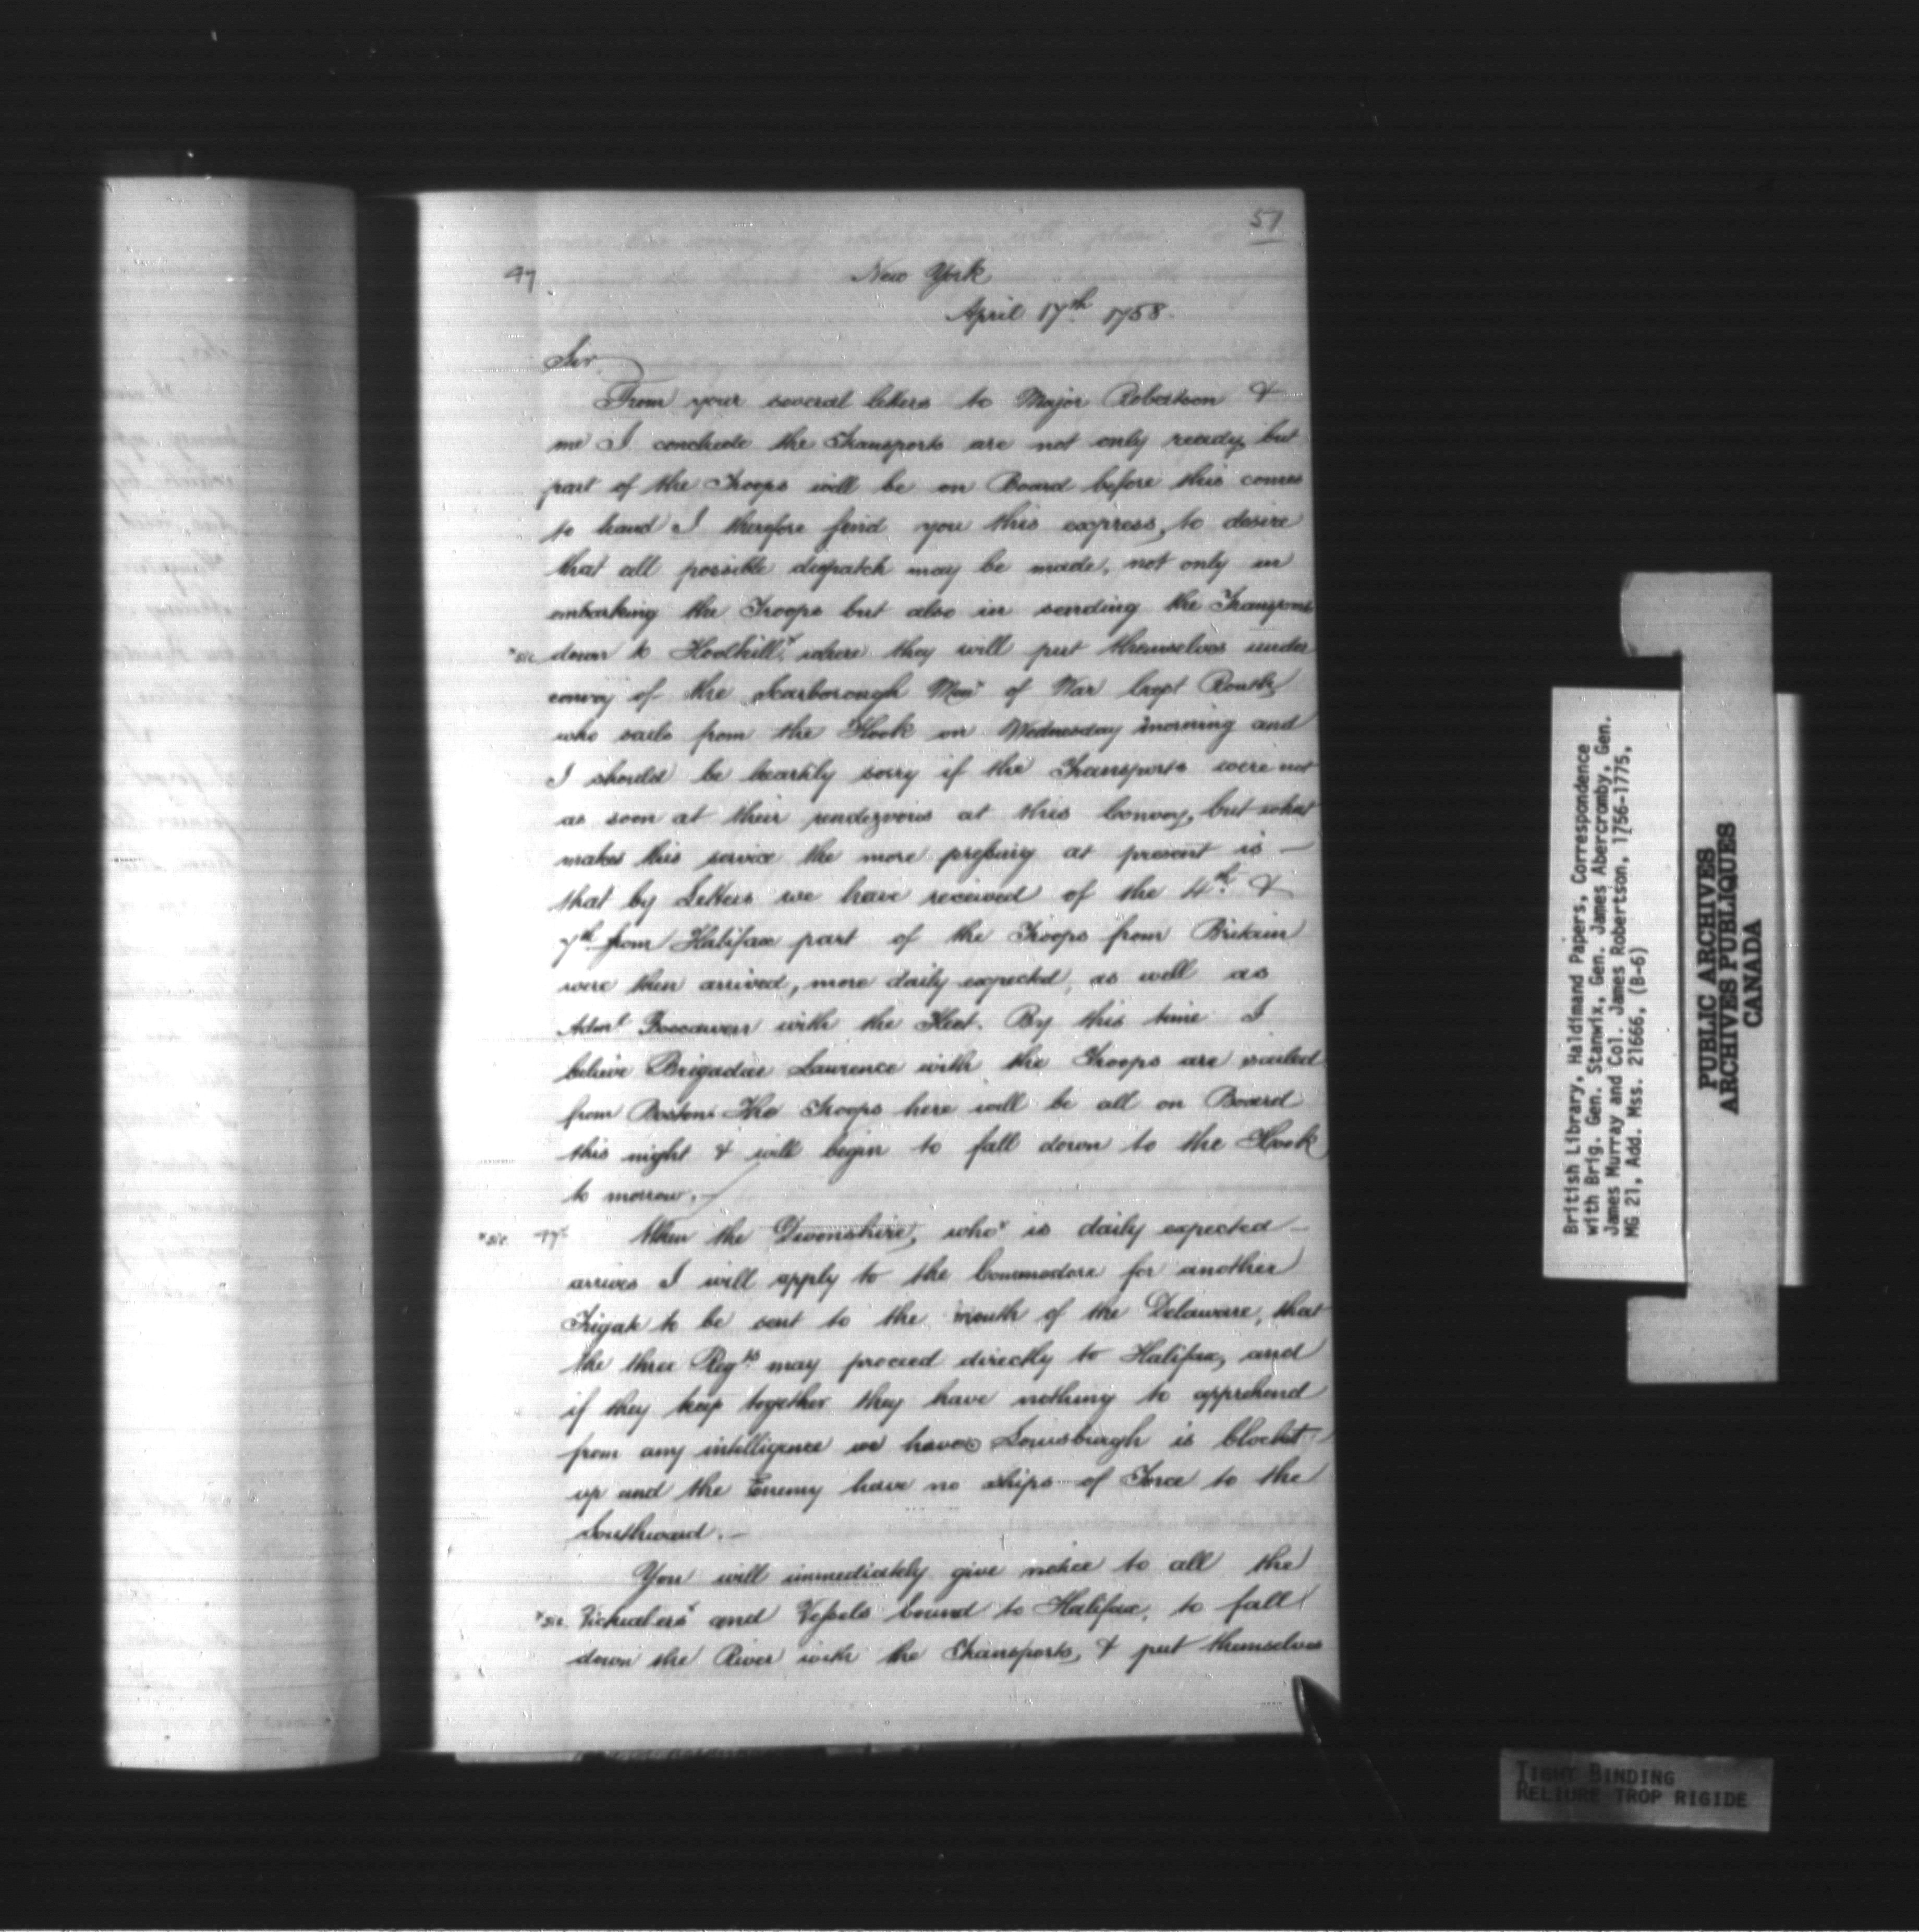 51
47
New York
April 17th 1758.
Sir,
From your several letters to Major Robertson &
me I conclude the Transports are not only ready, but
part of the Troops will be on Board before this comes
to hand I therefore send you this express, to desire
that all possible dispatch may be made, not only in
embarking the Troops but also in sending the Transports
*sic down to Hoodkill,* where they will put themselves under
convoy of the Scarborough Man of War Capt Routh
who sails from the Hook on Wednesday morning and
I should be heartily sorry if the Transports were not
as soon at their rendezvous at this Convoy, but what
makes this service the more pressing at present is —
that by Letters we have received of the 4th &
7th from Halifax part of the Troops from Britain
were then arrived, more daily expected, as well as
Adml Boscawen with the Fleet. By this time I
believe Brigadier Laurence with the Troops are sailed
from Boston. The Troops here will be all on Board
this night & will begin to fall down to the Hook
to morrow. —
*sic When the Devonshire, who* is daily expected —
arrives I will apply to the Commodore for another
Frigate to be sent to the mouth of the Delaware, that
the three Regts may proceed directly to Halifax, and
if they keep together they have nothing to apprehend
from any intelligence we have Louisburgh is blockt
up and the Enemy have no ships of Force to the
Southward. —
You will immediately give notice to all the
*sic. Victualers* and Vessels bound to Halifax, to fall
down the River with the Transports, & put themselves
British Library, Haldimand Papers, Correspondence
with Brig. Gen. Stanwix, Gen. James Abercromby, Gen.
James Murray and Col. James Robertson, 1756-1775,
MG 21, Add. Mss. 21666, (B-6)
PUBLIC ARCHIVES
ARCHIVES PUBLIQUES
CANADA
TIGHT BINDING
RELIURE TROP RIGIDE